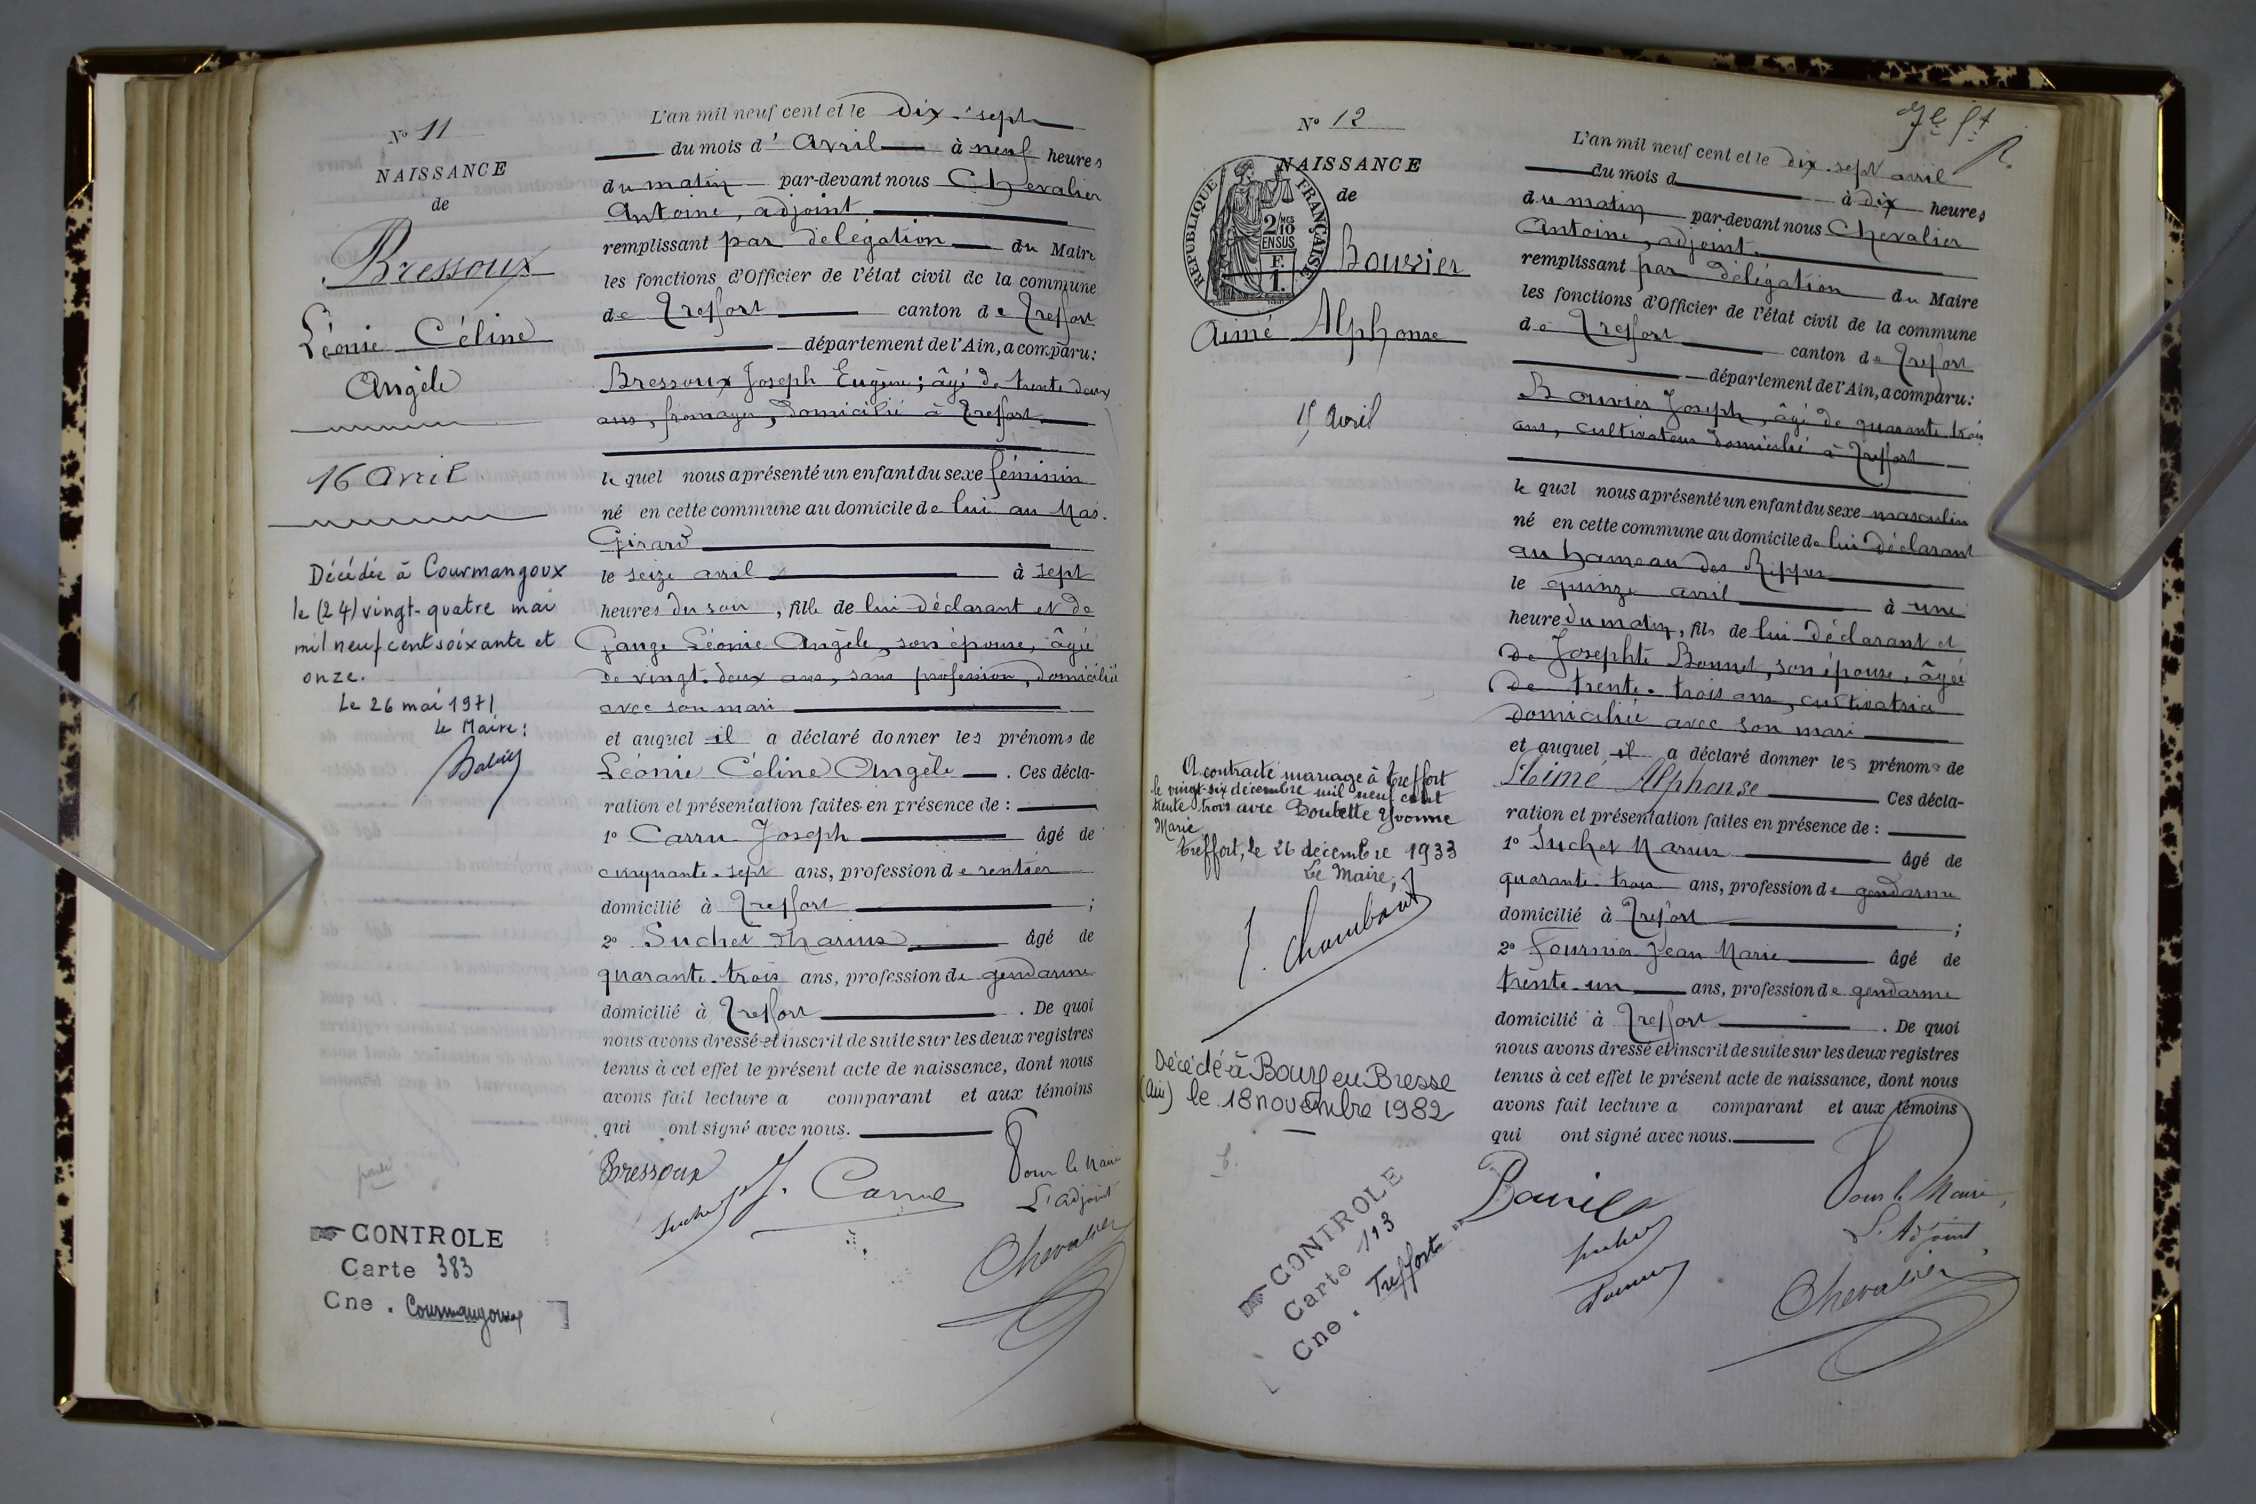 N° 11
NAISSANCE
de
Bressoux
Léonie Céline
Angèle
16 avril
Décédée à Courmangoux
le (24) vingt-quatre mai
mil neuf cent soixante et
onze.
Le 26 mai 1971
Le Maire:
CONTROLE
Carte 383
Cne. Courmangoux
L'an mil neuf cent et le dix-sept
du mois d'Avril à neuf heures
du matin par-devant nous Chevalier
Antoine, adjoint
remplissant par délégation du Maire
les fonctions d'Officier de l'état civil de la commune
de Treffort canton de Treffort
département de l'Ain, a comparu:
Bressoux Joseph Eugène; âgé de trente deux
ans, fromager, domicilié à Treffort
le quel nous a présenté un enfant du sexe féminin
né en cette commune au domicile de lui au Mas-
Girard
le seize avril à sept
heures du soir, fille de lui déclarant et de
Gange Léonie Angèle, son épouse, âgée
de vingt-deux ans, sans profession, domiciliée
avec son mari
et auquel il a déclaré donner les prénoms de
Léonie Céline Angèle. Ces décla-
ration et présentation faites en présence de:
1° Carru Joseph âgé de
cinquante-sept ans, profession de rentier
domicilié à Treffort;
2° Suchet Marius âgé de
quarante-trois ans, profession de gendarme
domicilié à Treffort. De quoi
nous avons dressé et inscrit de suite sur les deux registres
tenus à cet effet le présent acte de naissance, dont nous
avons fait lecture a comparant et aux témoins
qui ont signé avec nous.
Bressoux
Suchet J. Carru
Pour le Maire
L'adjoint
Chevalier
7e ft
N° 12
NAISSANCE
de
REPUBLIQUE FRANÇAISE
2/10 MES
EN SUS
F.
1.
Bouvier
Aimé Alphonse
15 Avril
A contracté mariage à Treffort
le vingt-six décembre mil neuf cent
trente trois avec Doubette Yvonne
Marie
Treffort, le 26 décembre 1933
Le Maire,
J. Chambard
Décédé à Bourg en Bresse
(Ain) le 18 novembre 1982
CONTROLE
Carte 113
Cne. Treffort
L'an mil neuf cent et le dix-sept avril
du mois d à dix heures
du matin par-devant nous Chevalier
Antoine, adjoint
remplissant par délégation du Maire
les fonctions d'Officier de l'état civil de la commune
de Treffort canton de Treffort
département de l'Ain, a comparu:
Bouvier Joseph, âgé de quarante-trois
ans, cultivateur domicilié à Treffort
le quel nous a présenté un enfant du sexe masculin
né en cette commune au domicile de lui déclarant
au hameau des Rippes
le quinze avril à une
heure du matin, fils de lui déclarant et
de Josephte Bonnet, son épouse, âgée
de trente-trois ans, cultivatrice
domiciliée avec son mari
et auquel il a déclaré donner les prénoms de
Aimé Alphonse Ces décla-
ration et présentation faites en présence de:
1° Suchet Marius âgé de
quarante-trois ans, profession de gendarme
domicilié à Treffort;
2° Fournier Jean Marie âgé de
trente-un ans, profession de gendarme
domicilié à Treffort. De quoi
nous avons dressé et inscrit de suite sur les deux registres
tenus à cet effet le présent acte de naissance, dont nous
avons fait lecture a comparant et aux témoins
qui ont signé avec nous.
Bouvier
Suchet
Pour le Maire,
L'Adjoint,
Chevalier